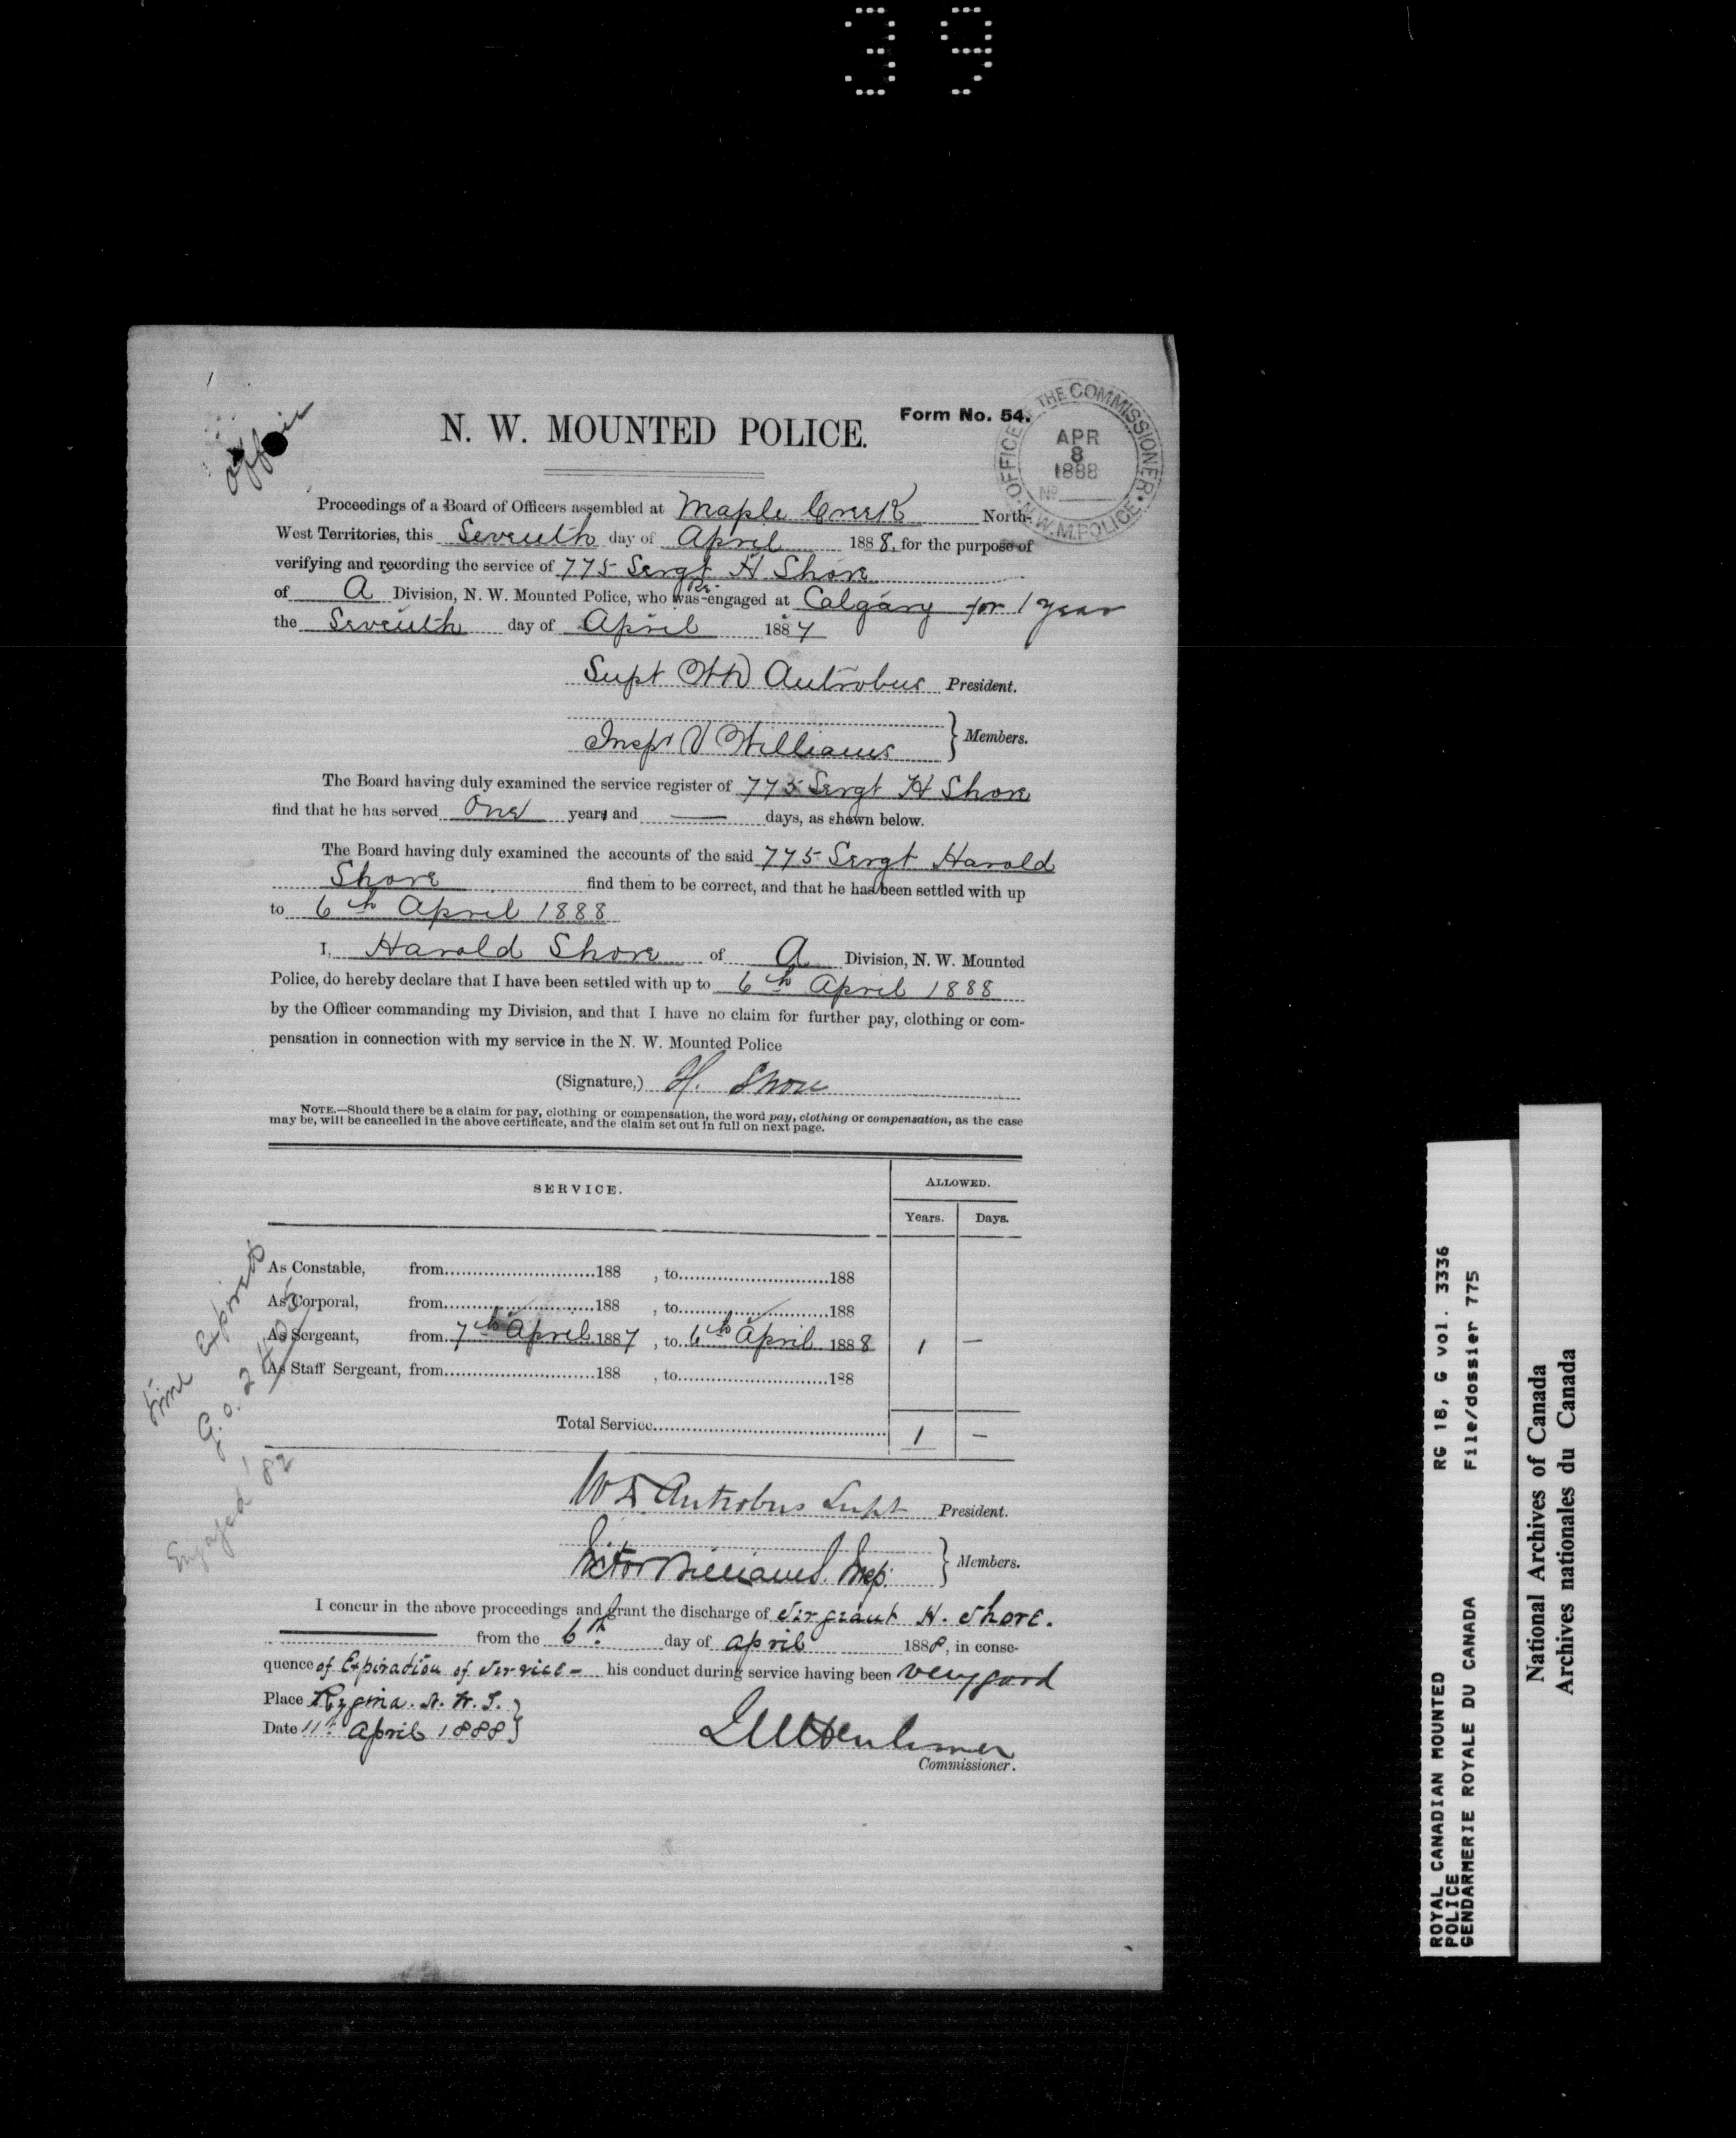 39
N. W. MOUNTED POLICE.
Form No. 54.
OFFICE OF THE COMMISSIONER
APR
8
1888
No
N.W.M. POLICE
Proceedings of a Board of Officers assembled at Maple Creek North-
West Territories, this Seventh day of April 1888, for the purpose of
verifying and recording the service of 775 Sergt H Shore
of A Division, N. W. Mounted Police, who was Re-engaged at Calgary for 1 year
the Seventh day of April 1887
Supt WD Antrobus President.
Inspr V Williams } Members.
The Board having duly examined the service register of 775 Sergt H Shore
find that he has served One years and — days, as shewn below.
The Board having duly examined the accounts of the said 775 Sergt Harold
Shore find them to be correct, and that he has been settled with up
to 6th April 1888
I, Harold Shore of A Division, N. W. Mounted
Police, do hereby declare that I have been settled with up to 6th April 1888
by the Officer commanding my Division, and that I have no claim for further pay, clothing or com-
pensation in connection with my service in the N. W. Mounted Police
(Signature,) H. Shore
NOTE.—Should there be a claim for pay, clothing or compensation, the word pay, clothing or compensation, as the case
may be, will be cancelled in the above certificate, and the claim set out in full on next page.
SERVICE.
ALLOWED.
Years. Days.
As Constable, from 188 , to 188
As Corporal, from 188 , to 188
As Sergeant, from 7th April 1887 , to 6th April 1888 1 —
As Staff Sergeant, from 188 , to 188
Total Service 1 —
time Expired
G.O. 2
Engaged '82
W D. Antrobus Supt President.
Victor Williams. Insp. } Members.
I concur in the above proceedings and grant the discharge of Sergeant H. Shore.
from the 6th. day of April 1888, in conse-
quence of Expiration of Service - his conduct during service having been very good
Place Regina. N. W. T. }
Date 11th April 1888 }
Commissioner.
ROYAL CANADIAN MOUNTED RG 18, G vol. 3336
POLICE
GENDARMERIE ROYALE DU CANADA File/dossier 775
National Archives of Canada
Archives nationales du Canada